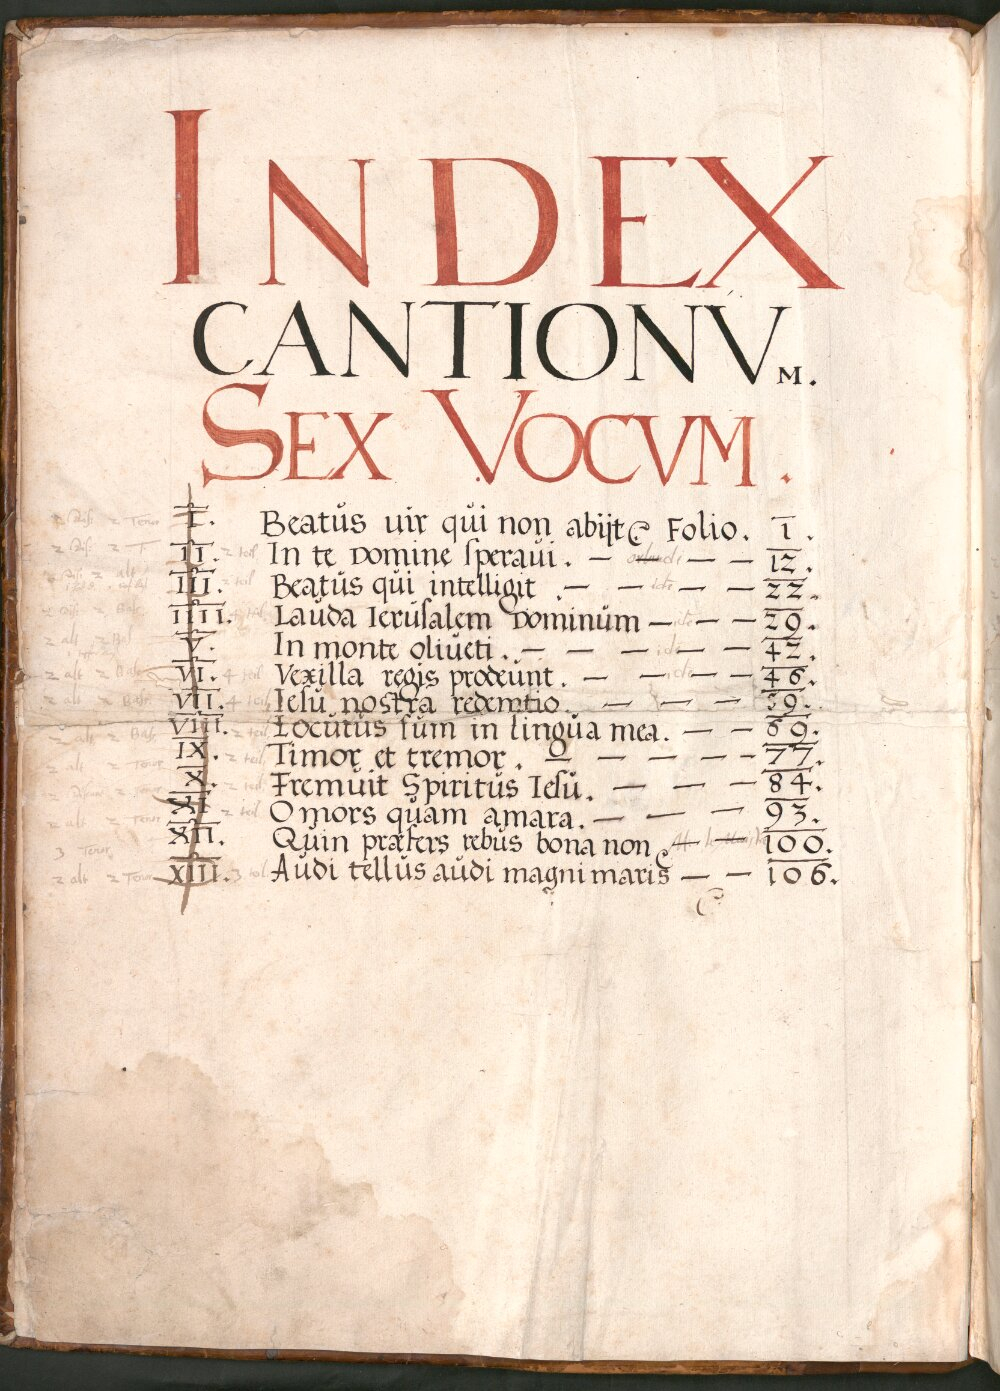 INDEX
CANTIONVM.
SEX VOCVM.
I. Beatus uir qui non abijt Folio. 1.
II. In te Domine speraui. — orlandi — — 12.
III. Beatus qui intelligit — — — — 22.
IIII. Lauda Ierusalem Dominum — — — 29.
V. In monte oliueti. — — — — 42.
VI. Vexilla regis prodeunt. — — — 46.
VII. Iesu nostra redemtio. — — — 59.
VIII. Locutus sum in lingua mea. — — 69.
IX. Timor et tremor. — — — — 77.
X. Fremuit Spiritus Iesu. — — — 84.
XI. O mors quam amara. — — — 93.
XII. Quin præfers rebus bona non — 100.
XIII. Audi tellus audi magni maris — — 106.